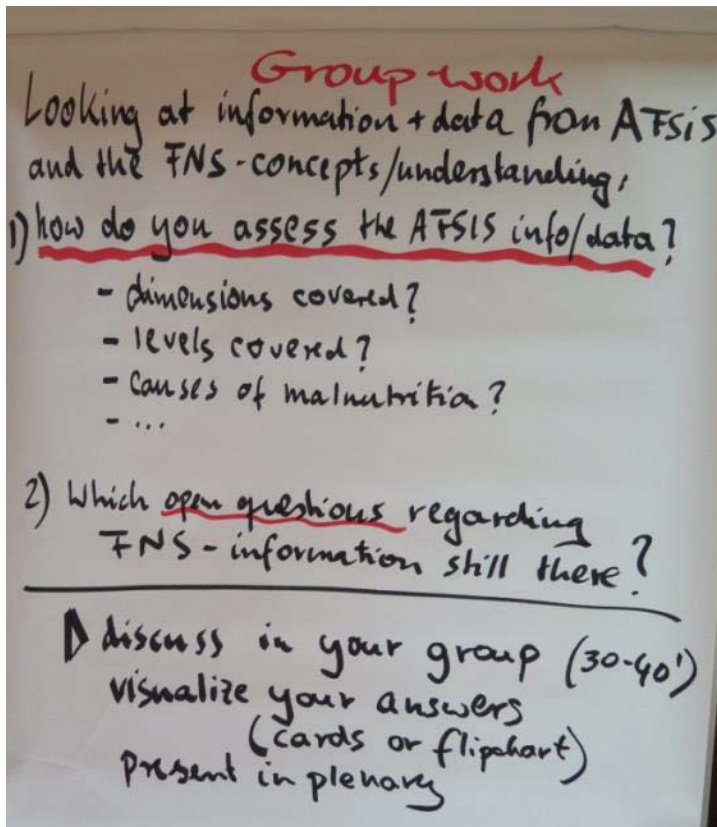 Group work
Looking at information + data from AFSiS
and the FNS-concepts/understanding,
1) how do you assess the AFSIS info/data?
- dimensions covered?
- levels covered?
- causes of malnutrition?
- ...
2) Which open questions regarding
FNS-information still there?
discuss in your group (30-40')
visualize your answers
(cards or flipchart)
present in plenary